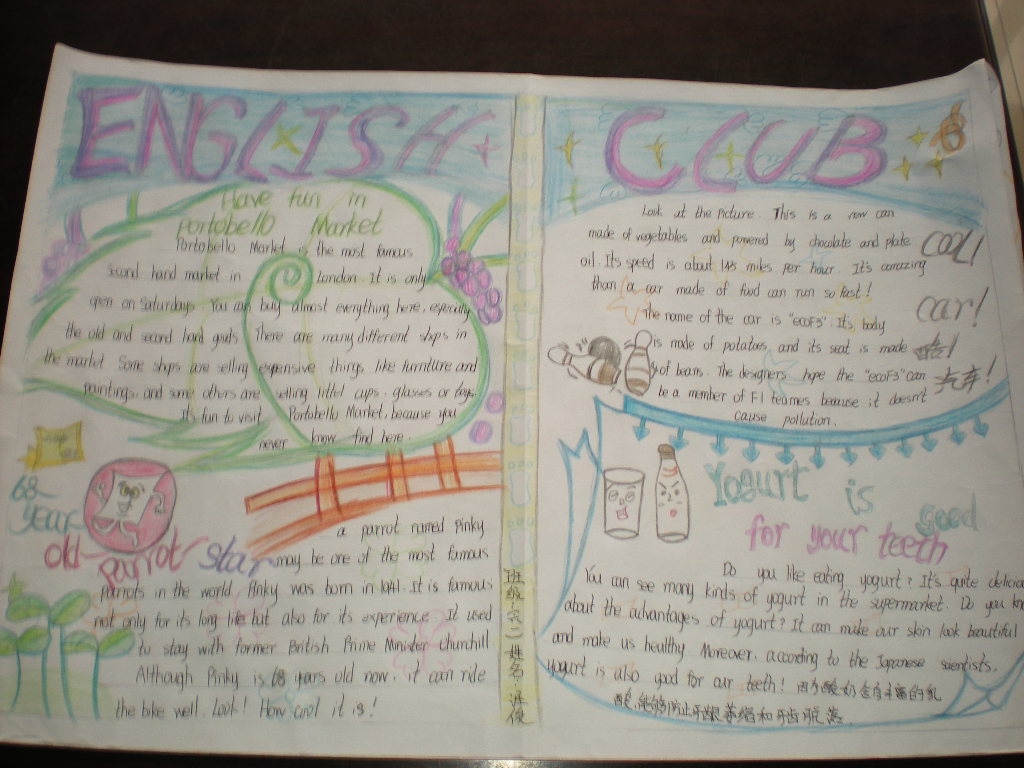 ENGLISH CLUB
Have fun in
Portobello Market
Portobello Market is the most famous
second hand market in London. It is only
open on Saturdays. You can buy almost everything here, especially
the old and second hand goods. There are many different shops in
the market. Some shops are selling expensive things like furniture and
paintings, and some others are selling littel cups, glasses or
It's fun to visit Portobello Market, because you
never know find here.
68-
year
old parrot star
a parrot named Pinky
may be one of the most famous
parrots in the world. Pinky was born in 1941. It is famous
not only for its long life but also for its experience. It used
to stay with former British Prime Minister Churchill.
Although Pinky is 68 years old now, it can ride
the bike well. Look! How cool it is!
班级:六(二) 姓名:
Look at the picture. This is a new car
made of vegetables and powered by chocolate and plate
oil. It's speed is about 145 miles per hour. It's amazing
than a car made of food can run so fast!
The name of the car is "ecoF3". It's body
is made of potatoes, and its seat is made
of beans. The designers hope the "ecoF3" can
be a member of F1 teames because it doesn't
cause pollution.
COOL!
car!
酷!
汽车!
Yogurt is good
for your teeth
Do you like eating yogurt? It's quite delicious
You can see many kinds of yogurt in the supermarket. Do you know
about the advantages of yogurt? It can make our skin look beautiful
and make us healthy. Moreover, according to the Japanese scientists,
yogurt is also good for our teeth! 因为酸奶含有丰富的乳
酸,能够防止牙龈萎缩和牙齿脱落.